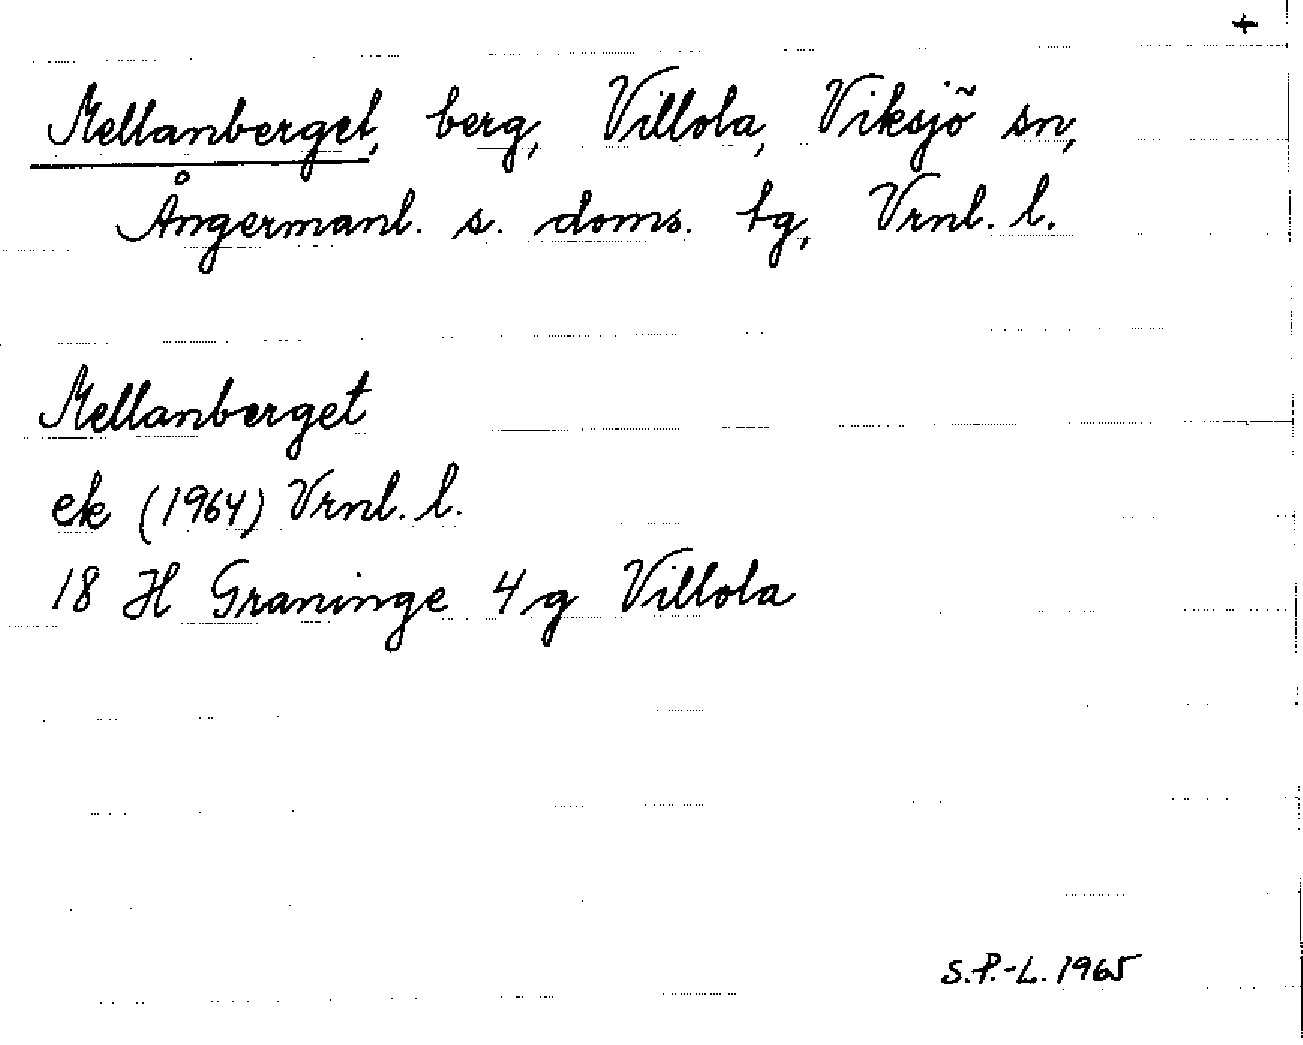 +
Mellanberget, berg, Villola, Viksjö sn,
Ångermanl. s. doms. tg, Vrnl. l.
Mellanberget
ek (1964) Vrnl. l.
18 H Graninge 4 g Villola
S.P.-L. 1965